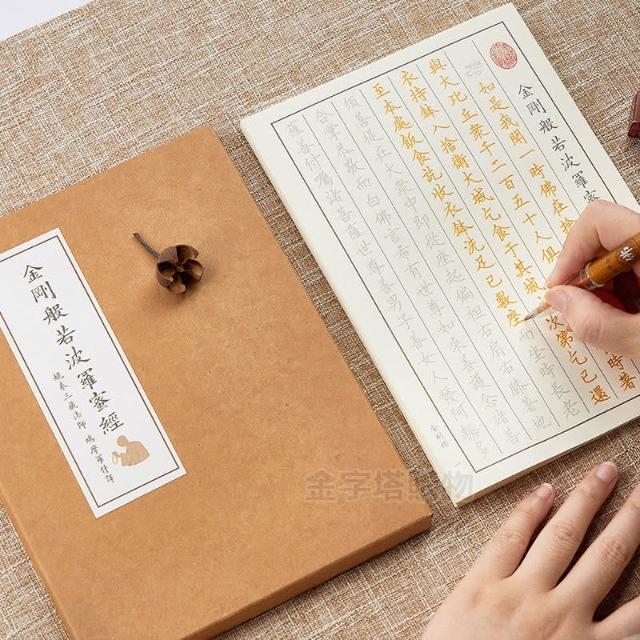 金剛般若波羅蜜經
姚秦三藏法師 鳩摩羅什譯
金剛般若波羅蜜
如是我聞一時佛在
與大比丘眾千二百五十人俱
衣持鉢入舍衛大城乞食于其城次第乞已還
至本處飯食訖收衣鉢洗足已敷座而坐時長老
須菩提在大眾中即從座起偏袒右肩右膝著地
合掌恭敬而白佛言希有世尊如來善護念諸菩
薩善付囑諸菩薩世尊善男子善女人發阿耨多
金剛經
金字塔購物